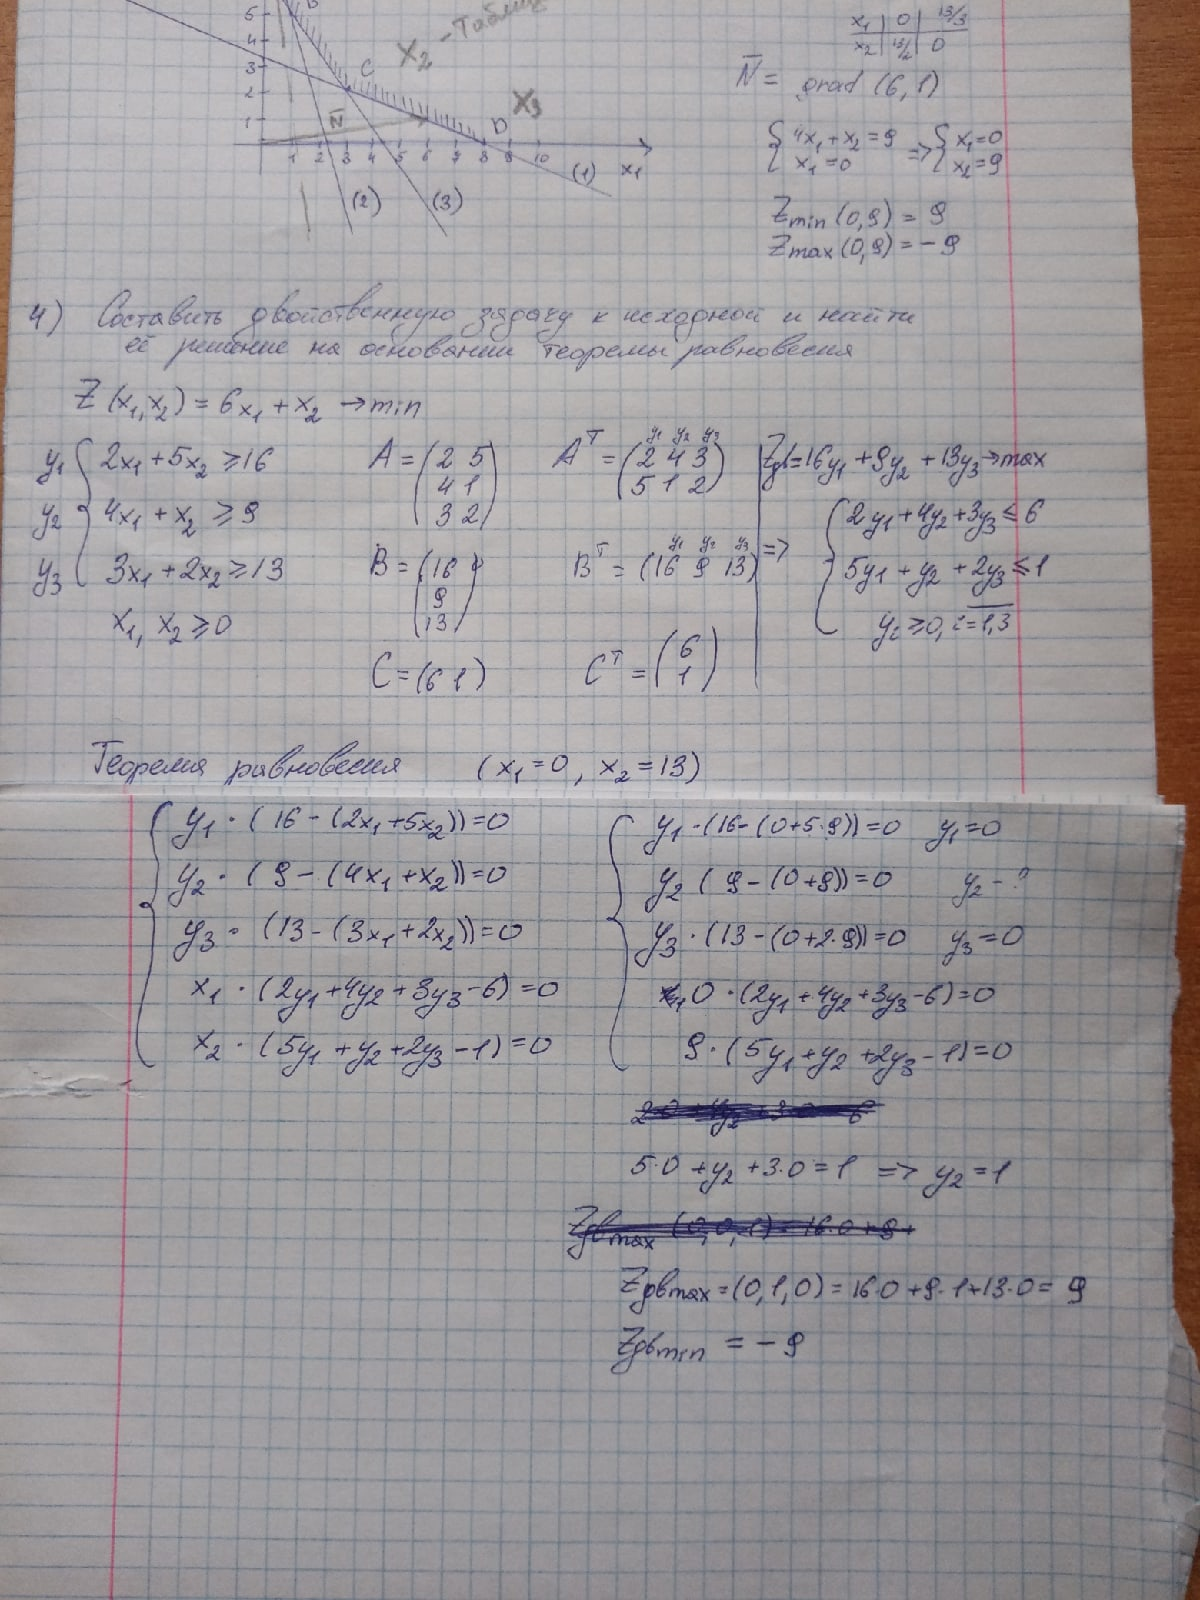 5
4
3
2
1
B
C
D
X₂ - Таблиц
X₃
N̄
1 2 3 4 5 6 7 8 9 10 x₁
(1)
(2) (3)
x₁ | 0 | 13/3
x₂ | 13/2 | 0
N̄ = grad (6, 1)
{4x₁ + x₂ = 9 => {x₁ = 0
x₁ = 0 x₂ = 9
Zmin (0, 9) = 9
Zmax (0, 9) = -9
4) Составить двойственную задачу к исходной и найти
её решение на основании теоремы равновесия
Z (x₁, x₂) = 6x₁ + x₂ → min
y₁ {2x₁ + 5x₂ ≥ 16
y₂ 4x₁ + x₂ ≥ 9
y₃ 3x₁ + 2x₂ ≥ 13
x₁, x₂ ≥ 0
A = (2 5
4 1
3 2)
B = (16
9
13)
C = (6 1)
y₁ y₂ y₃
Aᵀ = (2 4 3
5 1 2)
y₁ y₂ y₃
Bᵀ = (16 9 13) =>
Cᵀ = (6
1)
Zдв = 16y₁ + 9y₂ + 13y₃ → max
{2y₁ + 4y₂ + 3y₃ ≤ 6
5y₁ + y₂ + 2y₃ ≤ 1
yᵢ ≥ 0, i = 1,3
Теорема равновесия (x₁ = 0, x₂ = 13)
{y₁ · (16 - (2x₁ + 5x₂)) = 0
y₂ · (9 - (4x₁ + x₂)) = 0
y₃ · (13 - (3x₁ + 2x₂)) = 0
x₁ · (2y₁ + 4y₂ + 3y₃ - 6) = 0
x₂ · (5y₁ + y₂ + 2y₃ - 1) = 0
{y₁ · (16 - (0 + 5·9)) = 0 y₁ = 0
y₂ (9 - (0 + 9)) = 0 y₂ - ?
y₃ · (13 - (0 + 2·9)) = 0 y₃ = 0
0 · (2y₁ + 4y₂ + 3y₃ - 6) = 0
9 · (5y₁ + y₂ + 2y₃ - 1) = 0
5·0 + y₂ + 3·0 = 1 => y₂ = 1
Zдвmax (0, 0, 1) = 16·0 + 9 +
Zдвmax = (0, 1, 0) = 16·0 + 9·1 + 13·0 = 9
Zдвmin = - 9